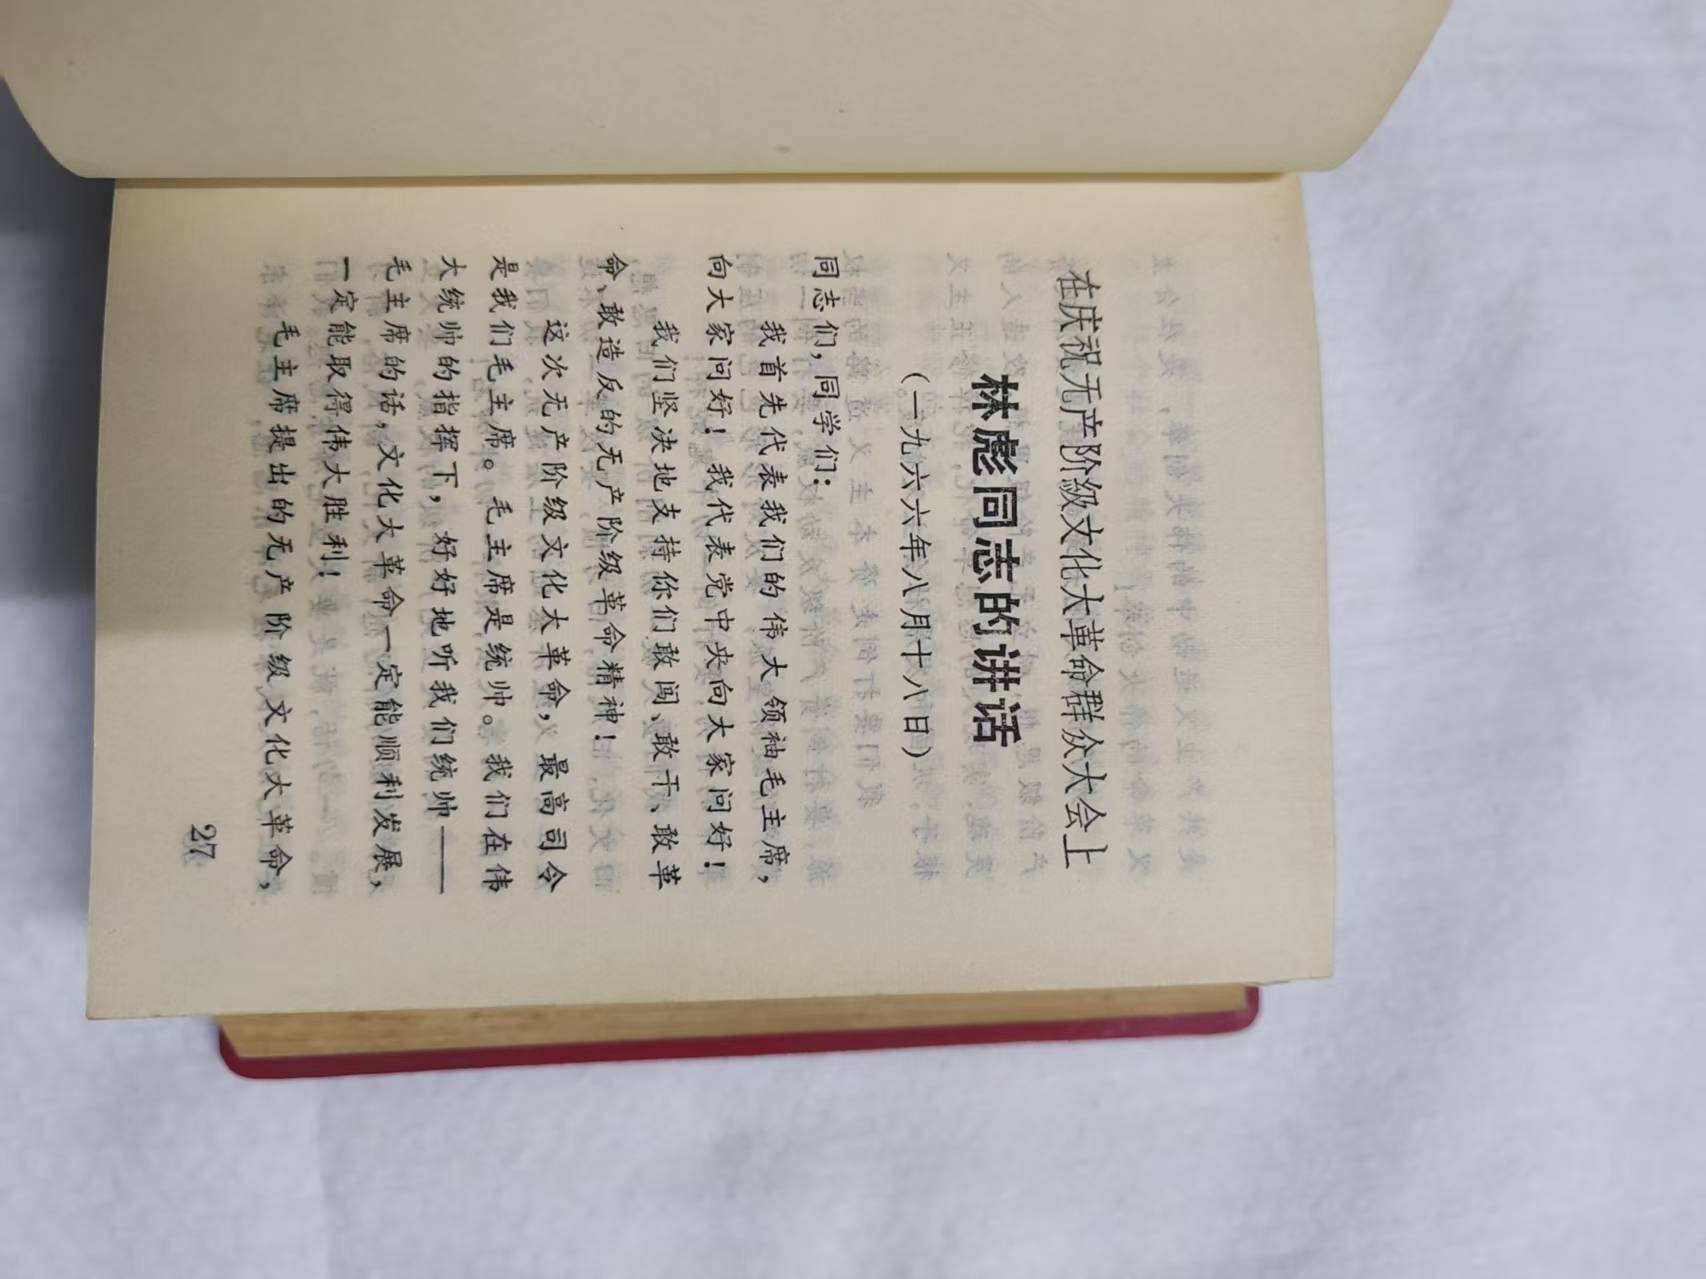 在庆祝无产阶级文化大革命群众大会上
林彪同志的讲话
(一九六六年八月十八日)
同志们,同学们:
我首先代表我们的伟大领袖毛主席,
向大家问好!我代表党中央向大家问好!
我们坚决地支持你们敢闯、敢干、敢革
命、敢造反的无产阶级革命精神!
这次无产阶级文化大革命,最高司令
是我们毛主席。毛主席是统帅。我们在伟
大统帅的指挥下,好好地听我们统帅——
毛主席的话,文化大革命一定能顺利发展,
一定能取得伟大胜利!
毛主席提出的无产阶级文化大革命,
27